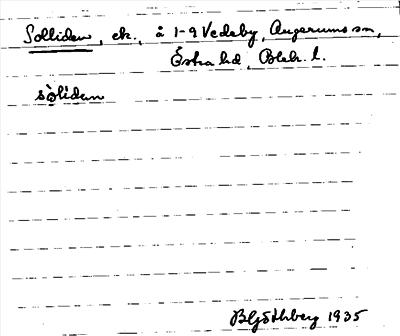 Solliden, ek., å 1-9 Vedeby, Augerums sn,
Östra hd, Blek. l.
sòlidən
B Göthberg 1935